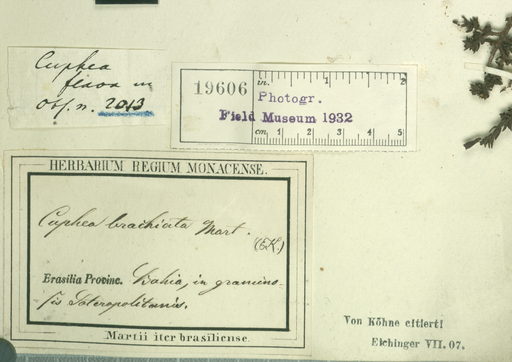 Cuphea
flava m
Obs. n. 2013
19606
in. 1 2
Photogr.
Field Museum 1932
cm 1 2 3 4 5
HERBARIUM REGIUM MONACENSE.
Cuphea brachiata Mart.
(EK.)
Brasilia Provinc. Bahia, in gramino-
sis Soteropolitanis.
Martii iter brasiliense.
Von Köhne citiert!
Eichinger VII. 07.